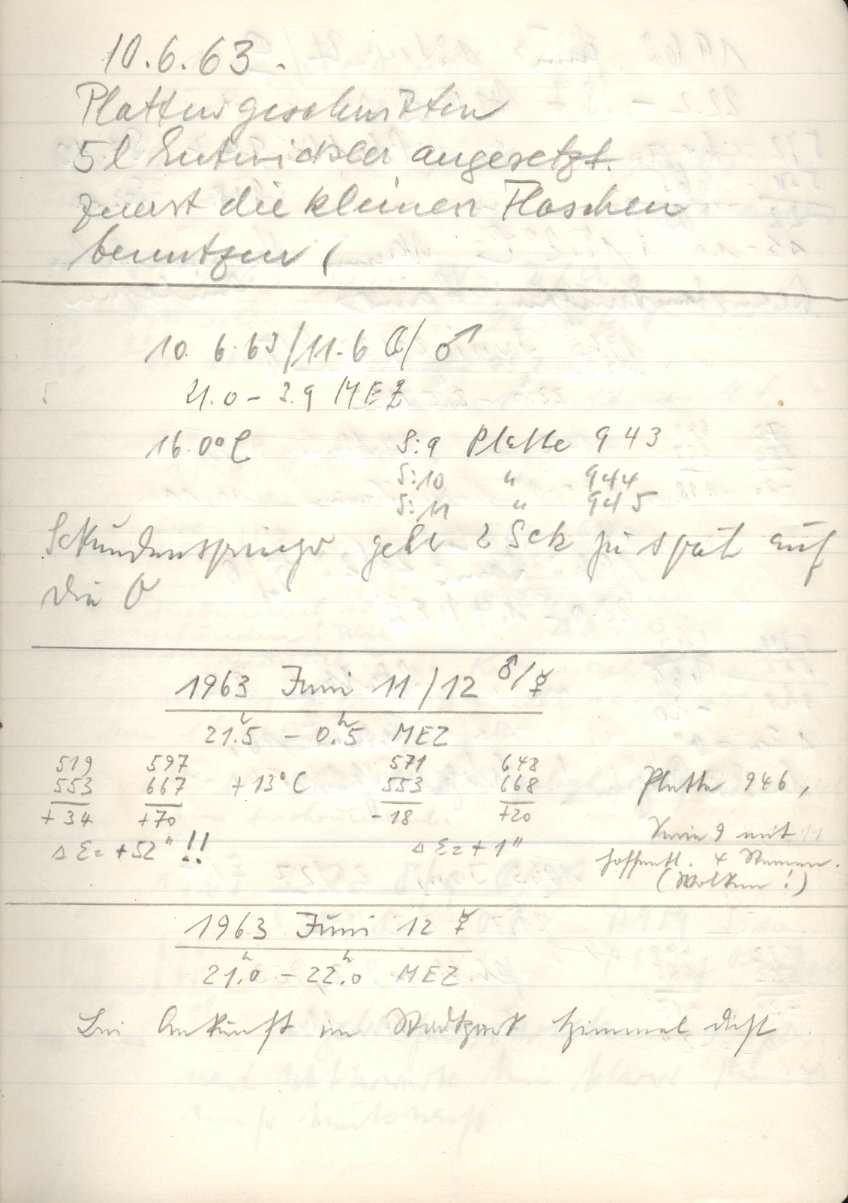 10.6.63.
Platten geschnitten
5 l Entwickler angesetzt.
zuerst die kleinen Flaschen
benutzen!
10. 6. 63/11.6 ☾/♂
21.0 - 2.9 MEZ
16.0°C S:9 Platte 943
S:10 " 944
S:11 " 945
Sekundenspringer geht 2 Sek zu spät auf
die 0
1963 Juni 11/12 ♂/☿
21ʰ.5 - 0ʰ.5 MEZ
519 597 571 648
553 667 +13°C 553 668 Platte 946,
+34 +70 -18 +20
Serie 9 mit
Δ Σ = +52" !! Δ Σ = +1"
hoffentl. 4 Sternen.
(Wolken!)
1963 Juni 12 ☿
21ʰ.0 - 22ʰ.0 MEZ
Bei Ankunft im Stadtpark Himmel dicht